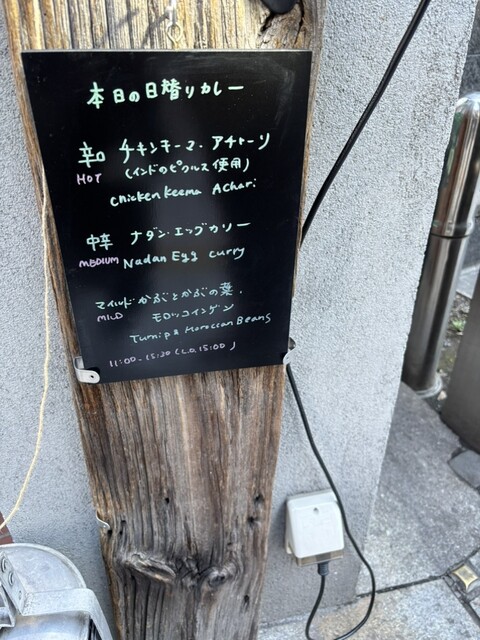 本日の日替りカレー
辛口 チキンキーマ・アチャーリ
HOT (インドのピクルス使用)
chicken keema Achari
中辛 ナダン・エッグカリー
MEDIUM Nadan Egg curry
マイルド かぶとかぶの葉、
MILD モロッコインゲン
Turnip & Moroccan Beans
11:00-15:30 (L.O.15:00)